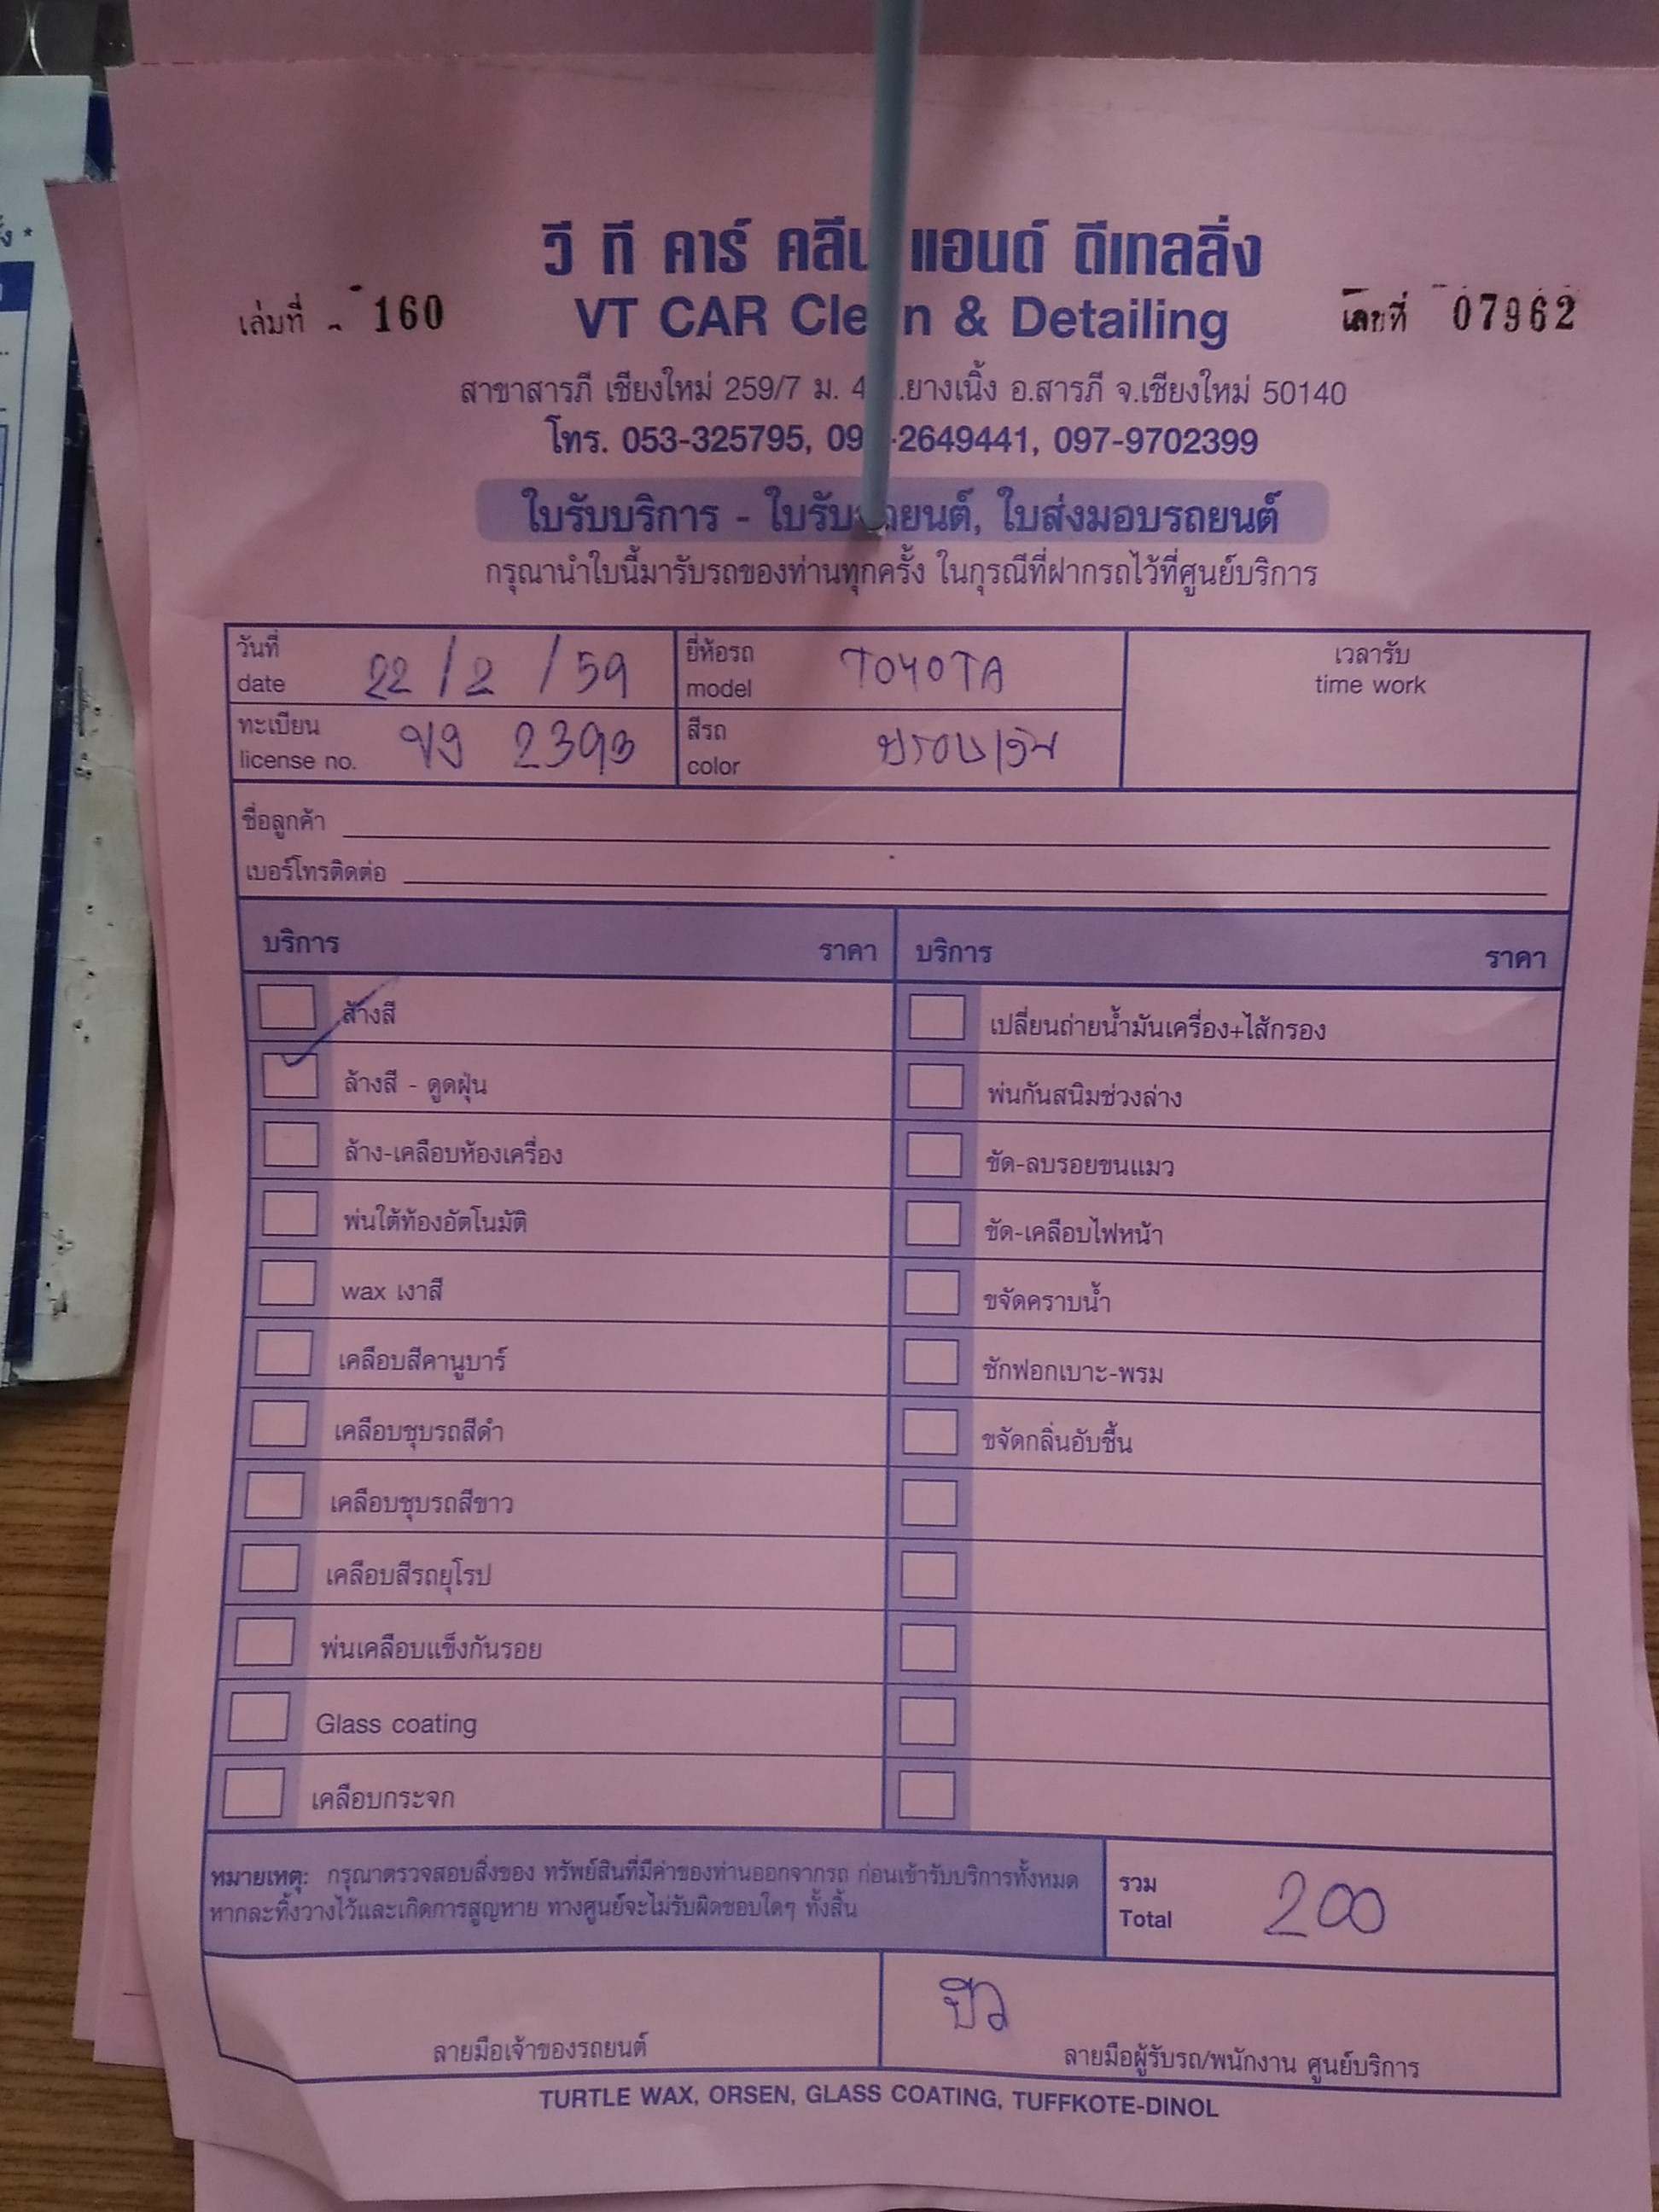 วี ที คาร์ คลีน แอนด์ ดีเทลลิ่ง
เล่มที่ 160
VT CAR Clean & Detailing
เลขที่ 07962
สาขาสารภี เชียงใหม่ 259/7 ม. 4 .ยางเนิ้ง อ.สารภี จ.เชียงใหม่ 50140
โทร. 053-325795, 09 -2649441, 097-9702399
ใบรับบริการ - ใบรับรถยนต์, ใบส่งมอบรถยนต์
กรุณานำใบนี้มารับรถของท่านทุกครั้ง ในกุรณีที่ฝากรถไว้ที่ศูนย์บริการ
วันที่ date 22/2/59
ยี่ห้อรถ model TOYOTA
เวลารับ
time work
ทะเบียน license no. 2393
สีรถ color
ชื่อลูกค้า
เบอร์โทรติดต่อ
บริการ ราคา บริการ ราคา
ล้างสี เปลี่ยนถ่ายน้ำมันเครื่อง+ไส้กรอง
ล้างสี - ดูดฝุ่น พ่นกันสนิมช่วงล่าง
ล้าง-เคลือบห้องเครื่อง ขัด-ลบรอยขนแมว
พ่นใต้ท้องอัตโนมัติ ขัด-เคลือบไฟหน้า
wax เงาสี ขจัดคราบน้ำ
เคลือบสีคานูบาร์ ซักฟอกเบาะ-พรม
เคลือบชุบรถสีดำ ขจัดกลิ่นอับชื้น
เคลือบชุบรถสีขาว
เคลือบสีรถยุโรป
พ่นเคลือบแข็งกันรอย
Glass coating
เคลือบกระจก
หมายเหตุ: กรุณาตรวจสอบสิ่งของ ทรัพย์สินที่มีค่าของท่านออกจากรถ ก่อนเข้ารับบริการทั้งหมด
หากละทิ้งวางไว้และเกิดการสูญหาย ทางศูนย์จะไม่รับผิดชอบใดๆ ทั้งสิ้น
รวม
Total 200
ปิว
ลายมือเจ้าของรถยนต์ ลายมือผู้รับรถ/พนักงาน ศูนย์บริการ
TURTLE WAX, ORSEN, GLASS COATING, TUFFKOTE-DINOL